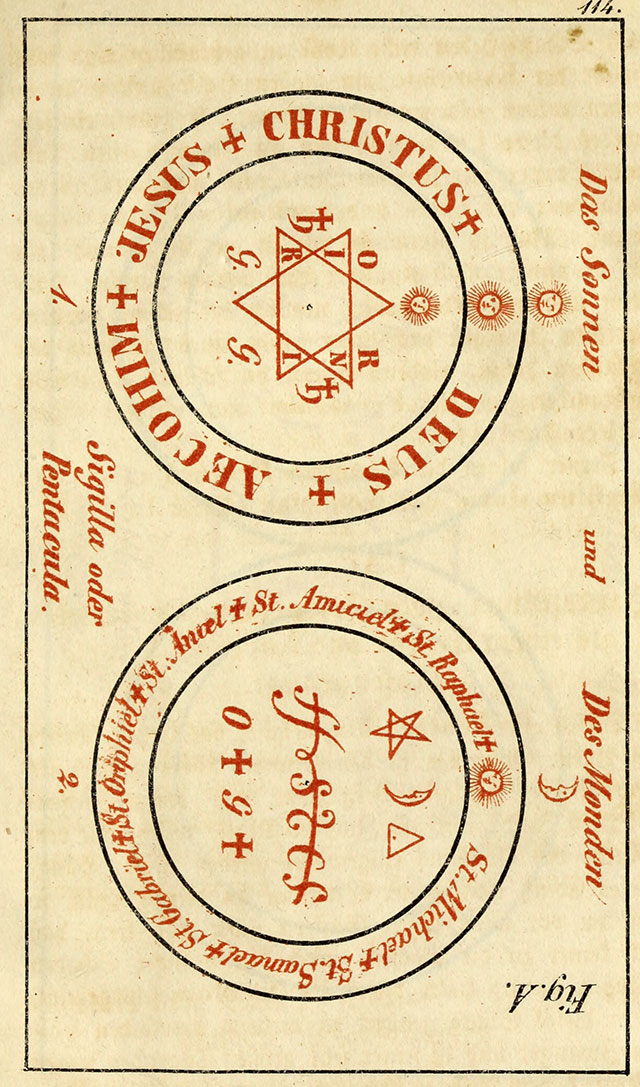 114.
Fig. A.
Das Sonnen und Des Monden
DEUS ✝ AECOHIM ✝ JESUS ✝ CHRISTUS ✝
O R
♄ I N ♄
R I
G. G.
St. Michael ✝ St. Samael ✝ St. Gabriel ✝ St. Oriphiel ✝ St. Anael ✝ St. Amiciel ✝ St. Raphael ✝
0 ✝ G ✝
Sigilla oder
Pentacula.
1. 2.